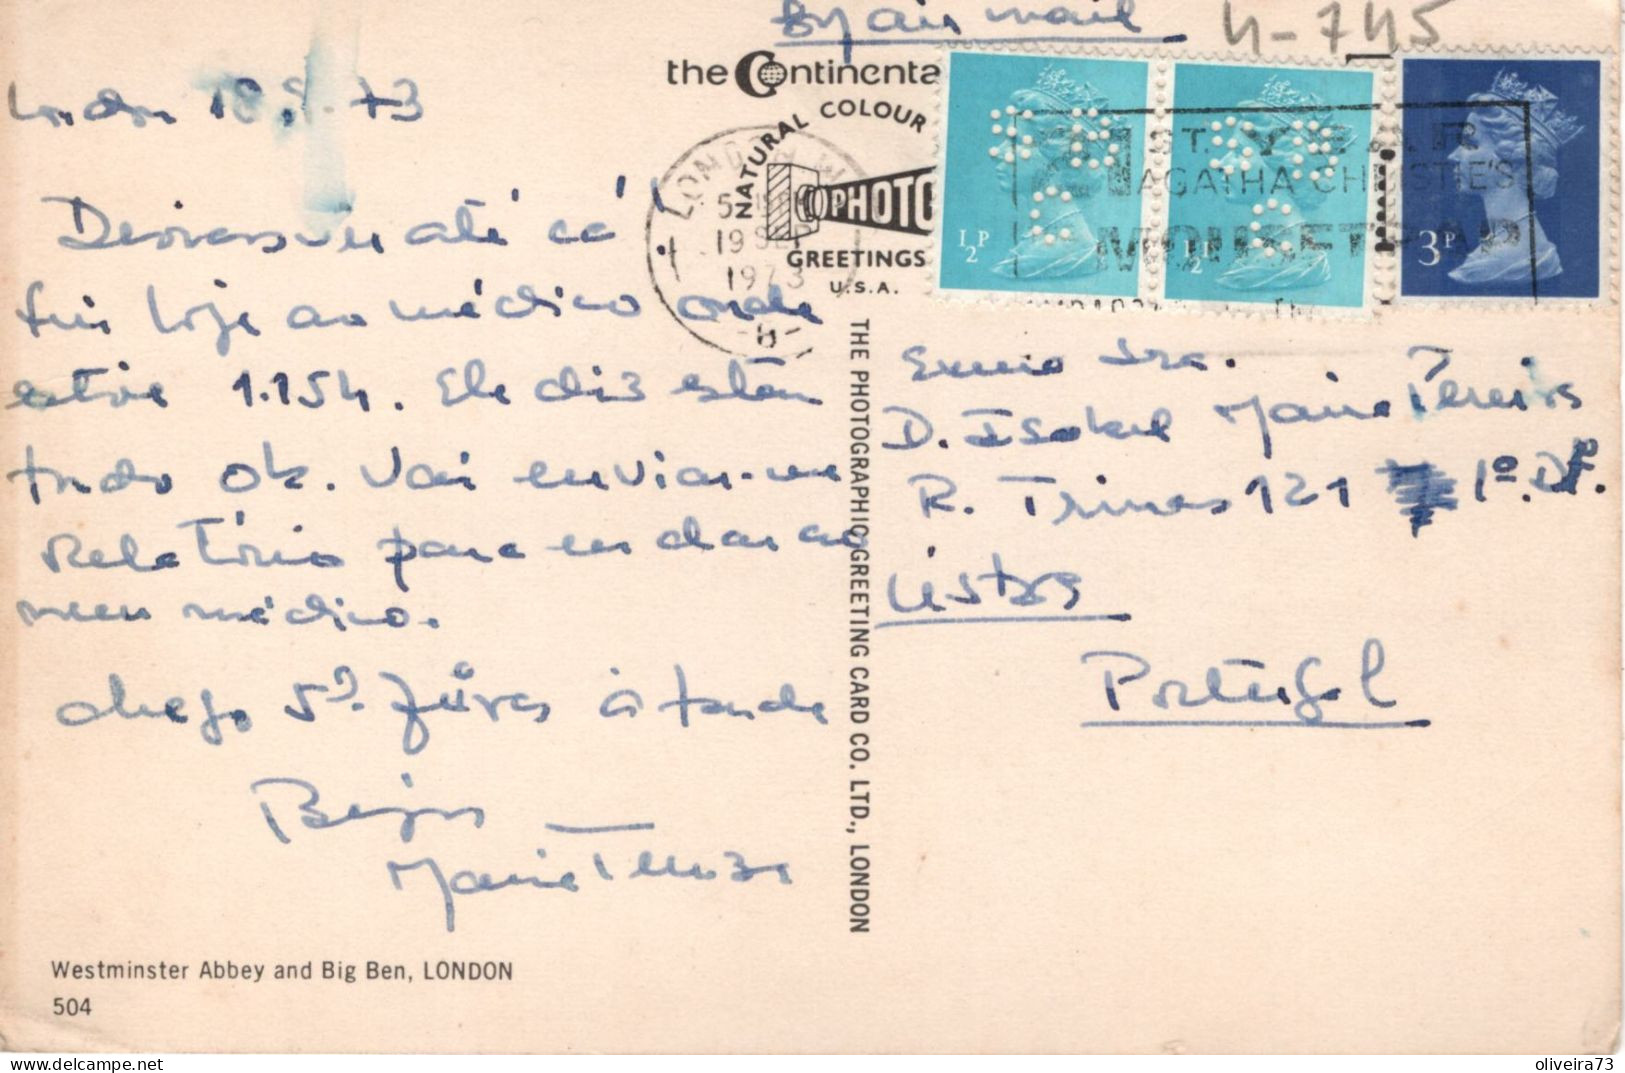 By air mail
4-745
London 18.9.73
the Continenta
NATURAL COLOUR
PHOTO
GREETINGS
U.S.A.
LONDON
19 SEP
1973
1ST. YEAR
AGATHA CHRISTIE'S
MOUSETRAP
½P
½P
3P
até cá!
fui hoje ao médico onde
estive 1.15h. Ele diz estar
tudo ok. Vai enviar-me
Relatório para eu dar ao
meu médico.
Chego 5ª feira à tarde
Beijos
Maria Tereza
Exma Sra.
D. Isabel Maria Pereira
R. Trinas 121 1º. Dt.
Lisboa
Portugal
THE PHOTOGRAPHIC GREETING CARD CO. LTD., LONDON
Westminster Abbey and Big Ben, LONDON
504
https://www.delcampe.net
oliveira73